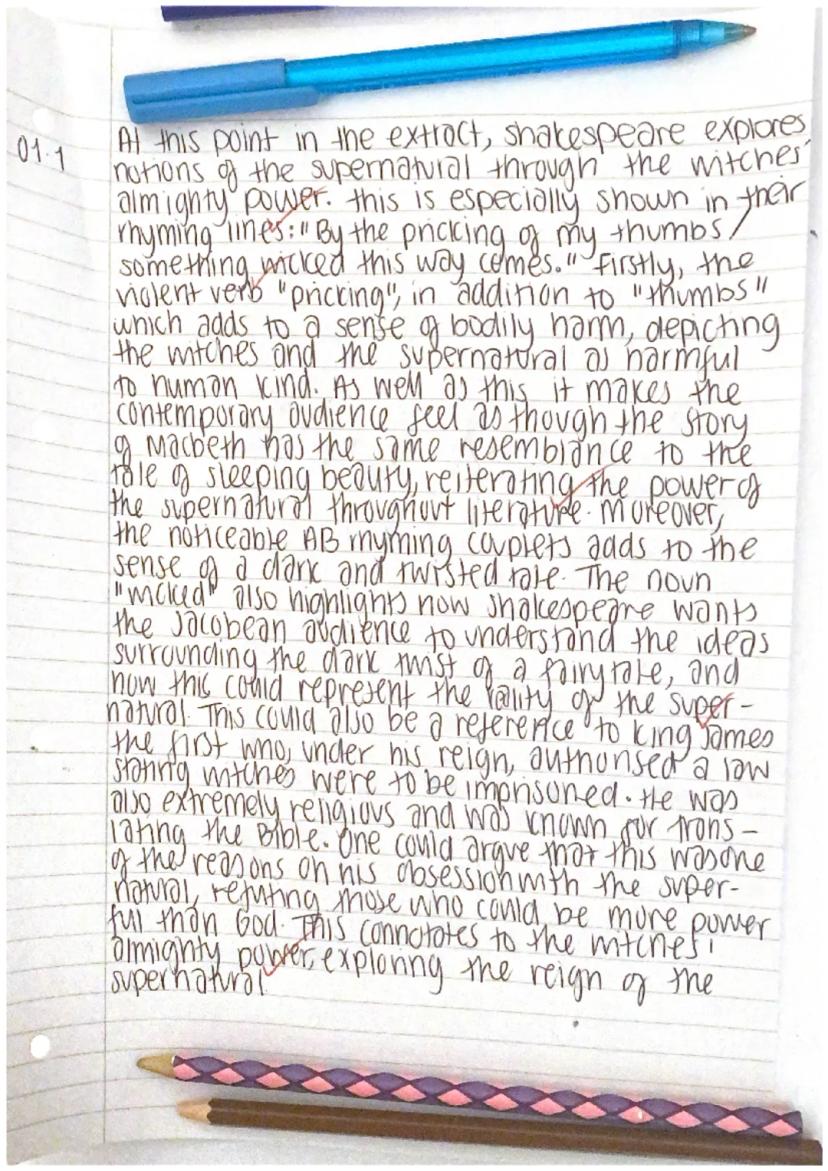 01.1
At this point in the extract, shakespeare explores
notions of the supernatural through the witches'
almighty power. this is especially shown in their
rhyming lines: "By the pricking of my thumbs /
something wicked this way comes." firstly, the
violent verb "pricking", in addition to "thumbs"
which adds to a sense of bodily harm, depicting
the witches and the supernatural as harmful
to human kind. As well as this it makes the
contemporary audience feel as though the story
of Macbeth has the same resemblance to the
tale of sleeping beauty, reiterating the power of
the supernatural throughout literature. Moreover,
the noticeable AB rhyming couplets adds to the
sense of a dark and twisted tale. The noun
"wicked" also highlights how shakespeare wants
the Jacobean audience to understand the ideas
surrounding the dark twist of a fairytale, and
how this could represent the reality of the super-
natural. This could also be a reference to King James
the first who, under his reign, authorised a law
stating witches were to be imprisoned. He was
also extremely religious and was known for trans-
lating the Bible. One could argue that this was one
of the reasons on his obsession with the super-
natural, refuting those who could be more power
ful than God. This connotates to the witches'
almighty power, exploring the reign of the
supernatural.